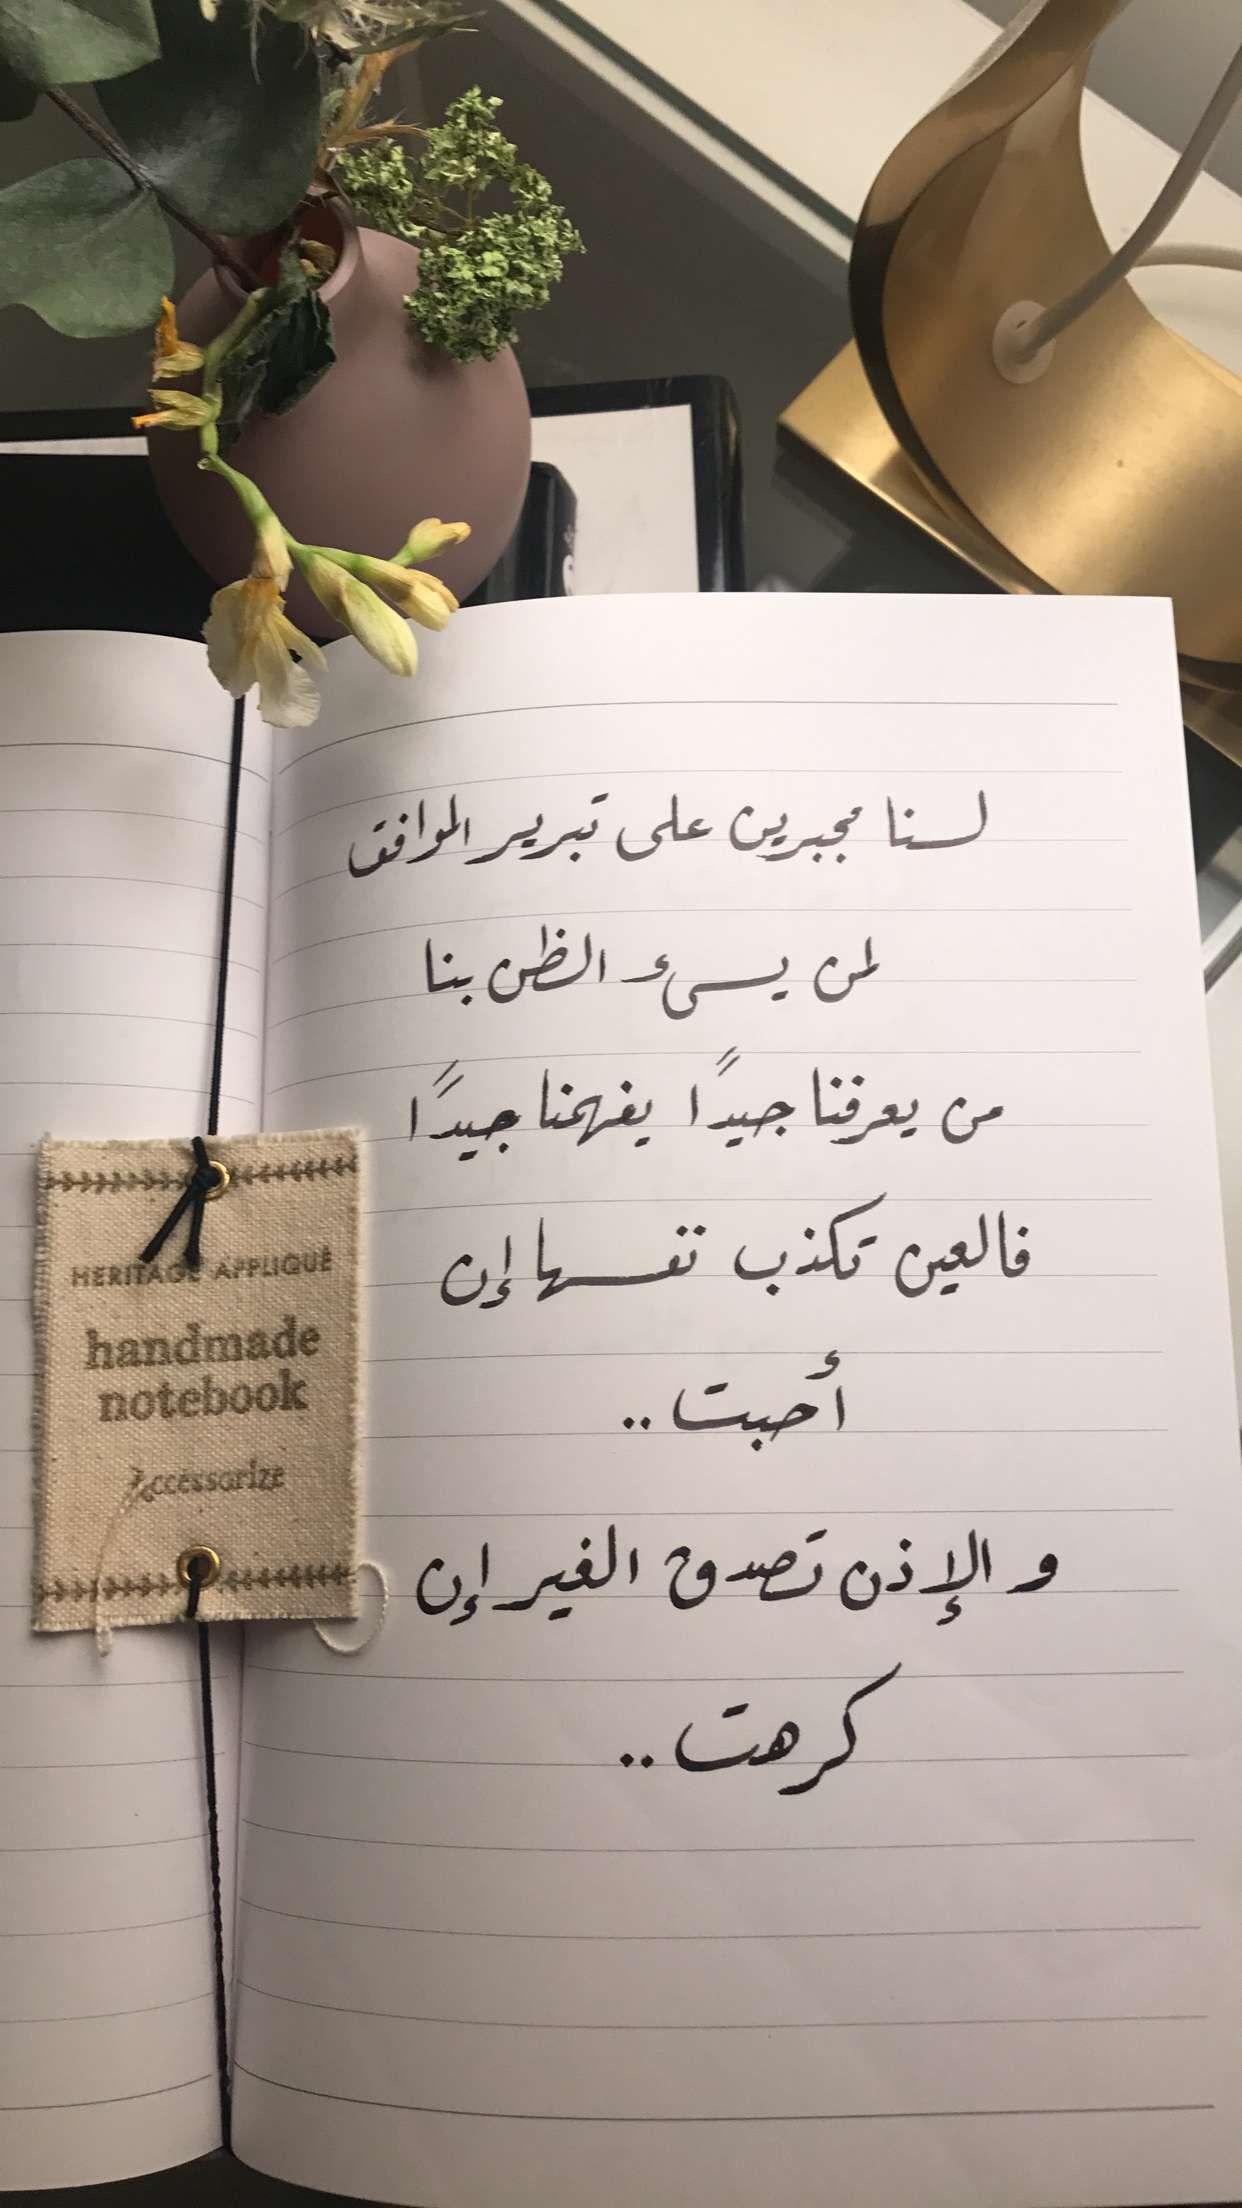 لسنا مجبرين على تبرير المواقف
لمن يسيء الظن بنا
من يعرفنا جيدًا يفهمنا جيدًا
فالعين تكذب نفسها إن
أحبت ..
و الإذن تصدق الغير إن
كرهت ..
HERITAGE APPLIQUE
handmade
notebook
Accessorize